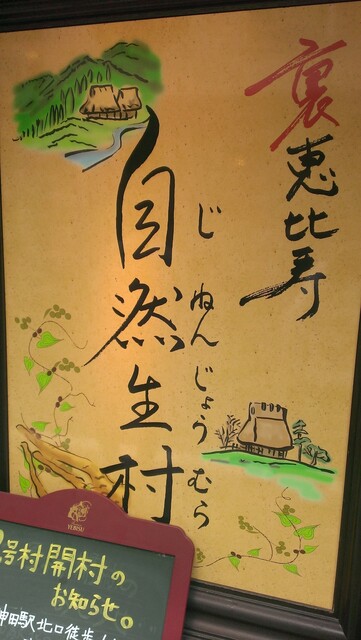 裏恵比寿
自然生村
じねんじょうむら
YEBISU
号村開村の
お知らせ。
神田駅北口徒歩